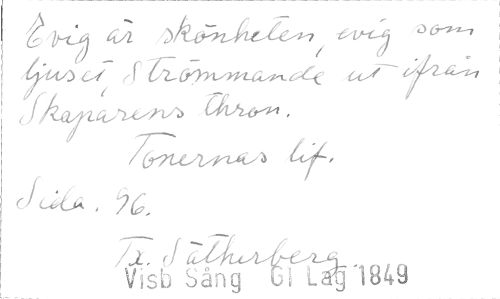 Evig är skönheten, evig som
ljuset, Strömmande ut ifrån
Skaparens thron.
Tonernas lif.
Sida. 96.
Tx. Sätherberg.
Visb Sång Gl Lag 1849